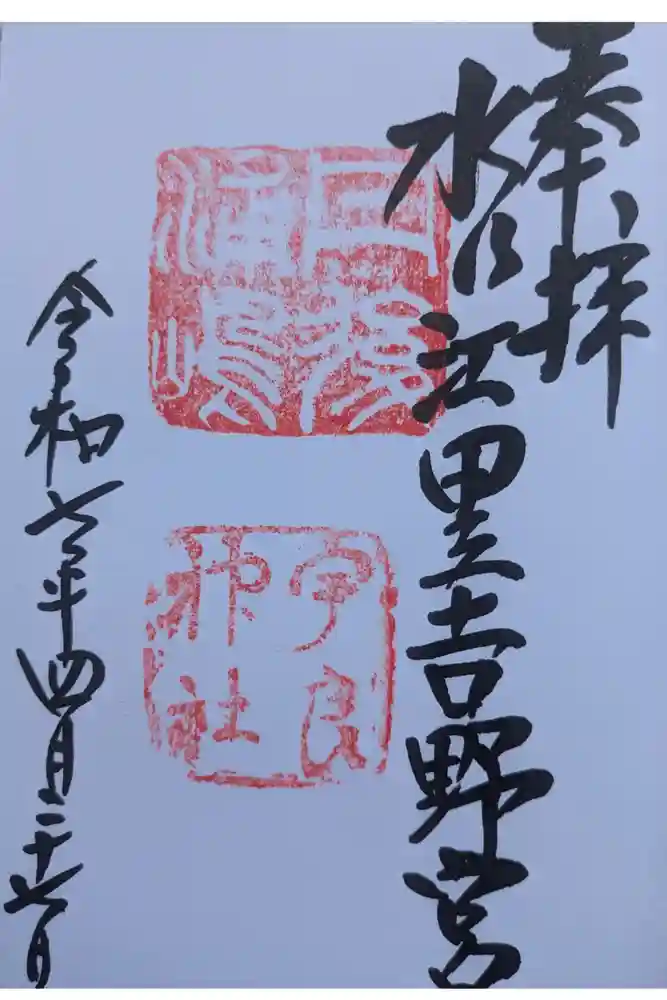 奉拝
水乃江里吉野宮
宇良
神社
令和七年四月二十七日